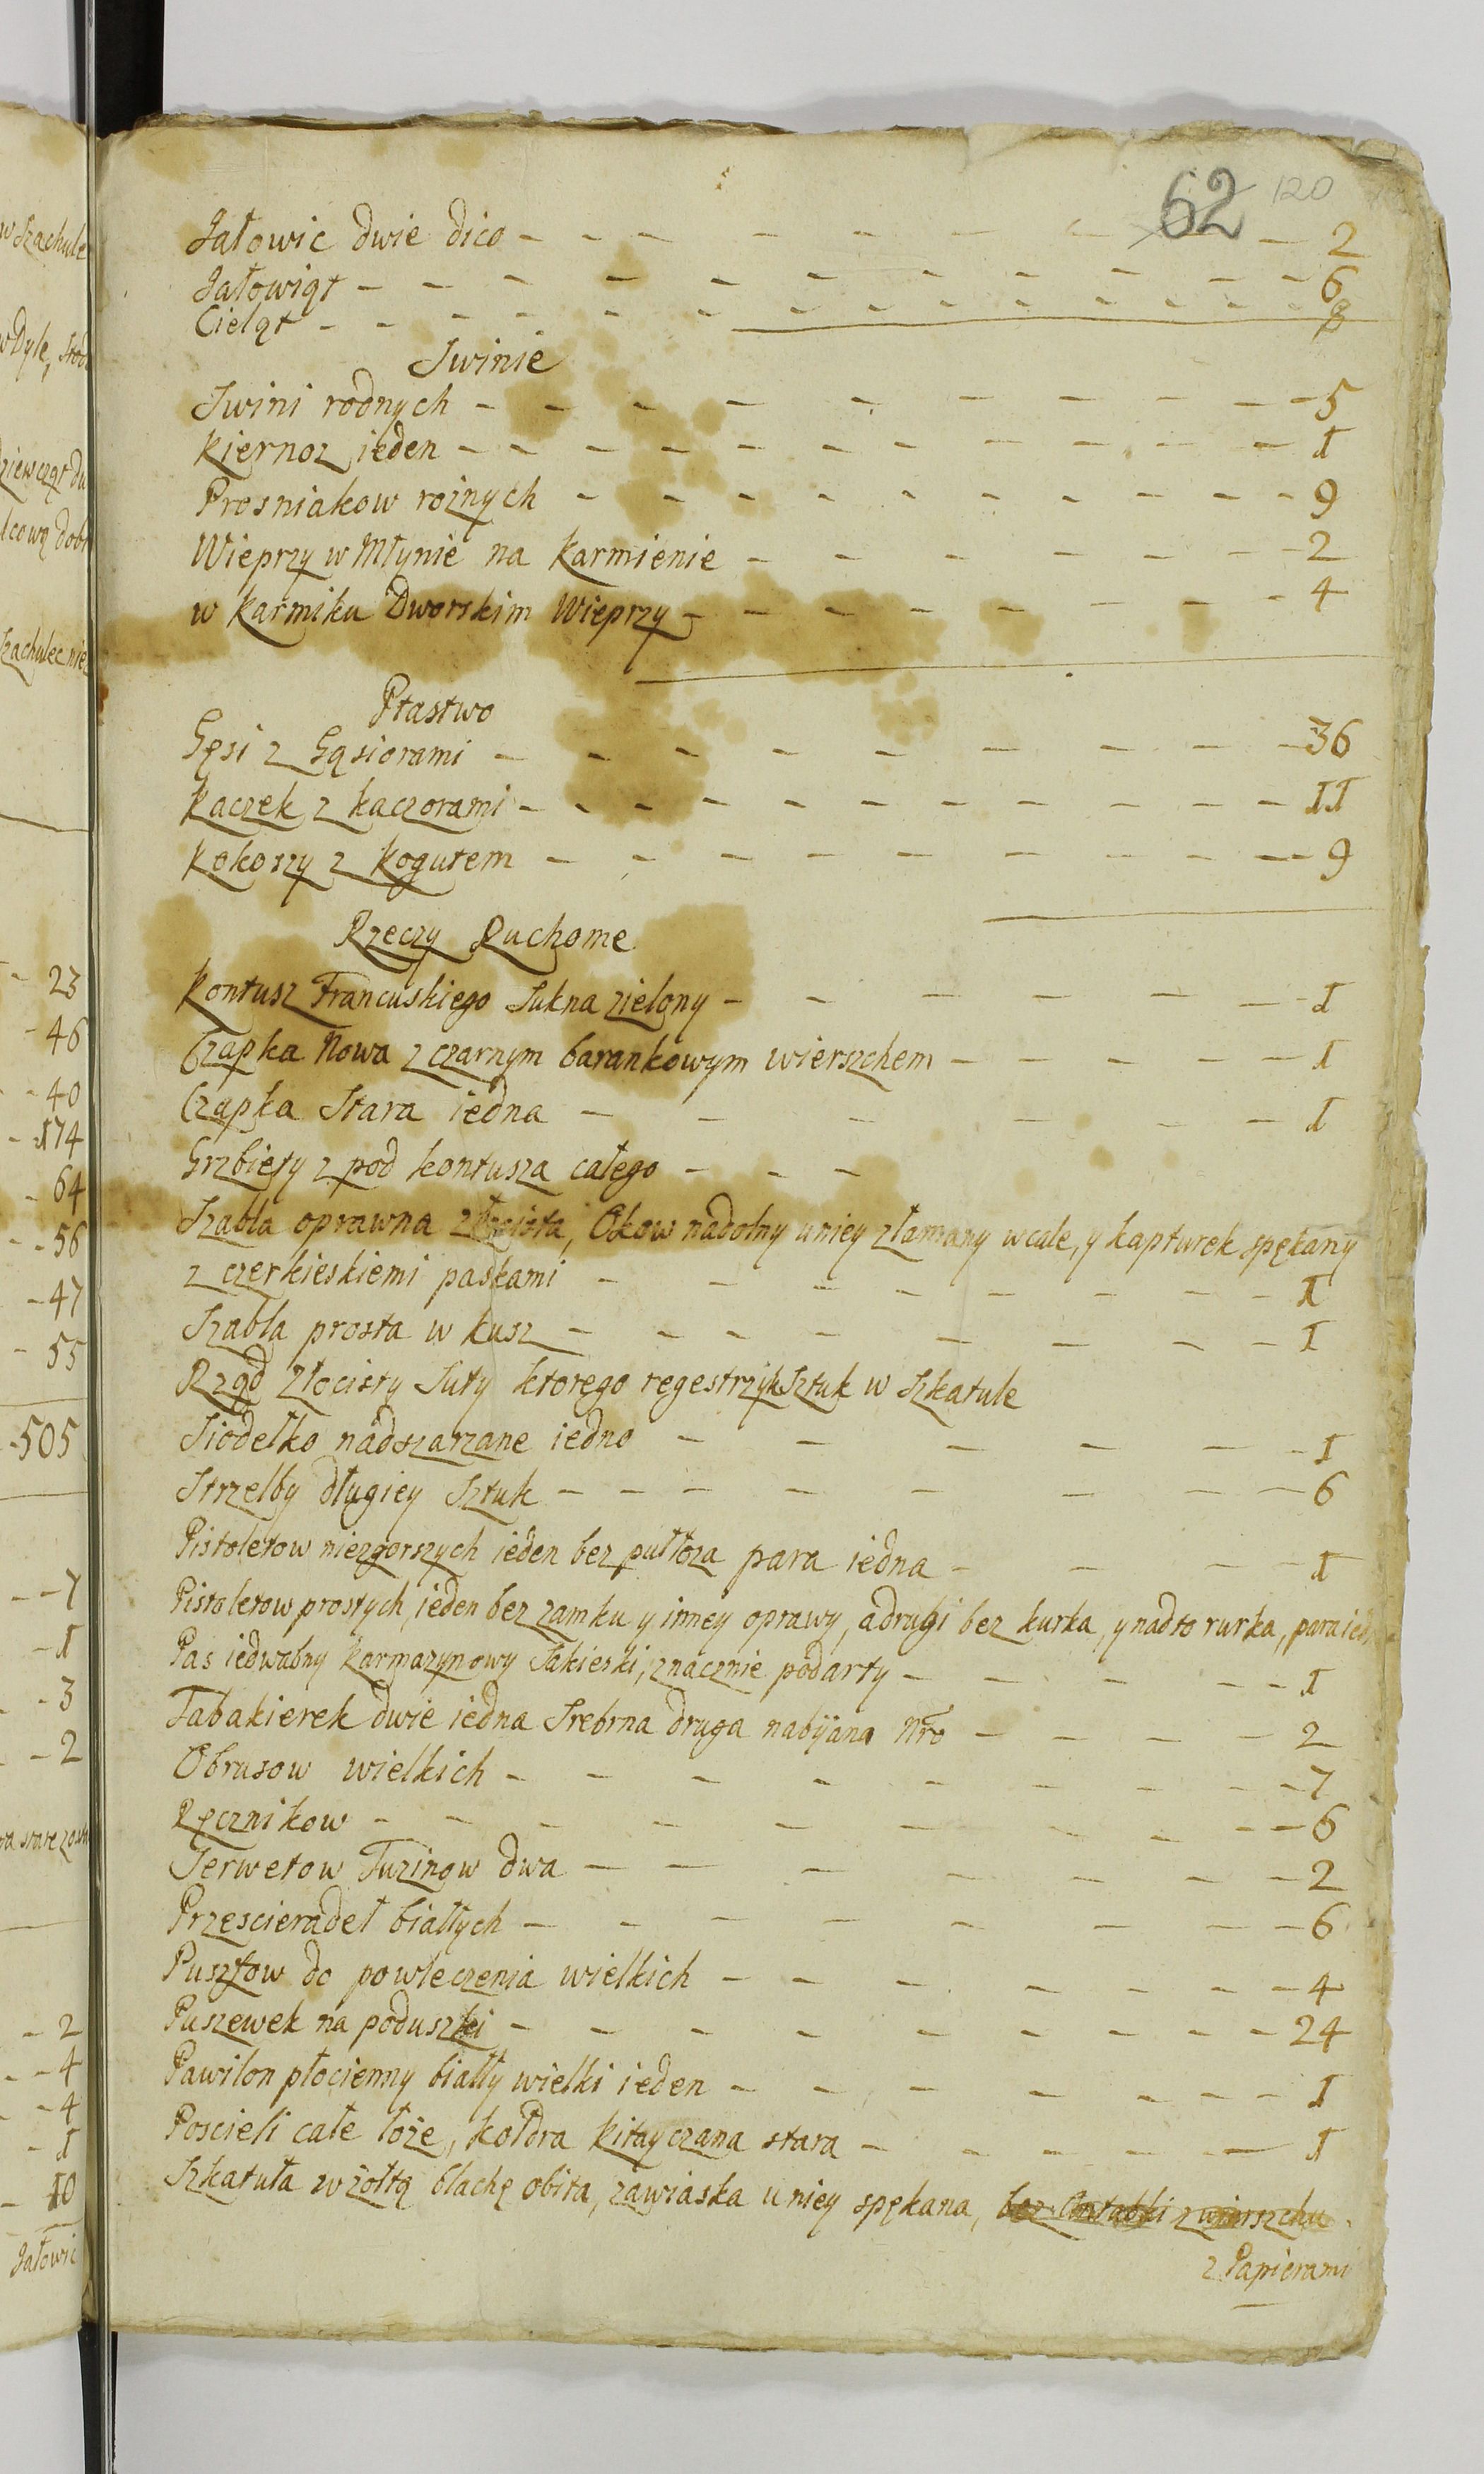 62 120
Jałowic dwie dico - - - - - - - - - 2
Jałowiąt - - - - - - - - - - 6
Cieląt - - - - - - - - - - 8
Swinie
Swini rodnych - - - - - - - - - 5
Kiernoz ieden - - - - - - - - - 1
Prosniakow rożnych - - - - - - - - - 9
Wieprzy w Młynie na karmienie - - - - - - 2
w karmiku Dworskim Wieprzy - - - - - - - 4
Ptastwo
Gęsi z Gąsiorami - - - - - - - - - 36
Kaczek z kaczorami - - - - - - - - - 11
Kokoszy z kogutem - - - - - - - - - 9
Rzeczy Ruchome
Kontusz Francuskiego Sukna zielony - - - - - - 1
Czapka Nowa z czarnym barankowym wierszchem - - - - - 1
Czapka Stara iedna - - - - - - 1
Grzbiety z pod kontusza całego - - -
Szabla oprawna złocista, Okow nadolny u niey złamany wcale, y kapturek spękany
z czerkieskiemi paskami - - - - - - - - 1
Szabla prosta w kusz - - - - - - - - 1
Rząd Złocisty Suty ktorego regestrzyk Sztuk w Szkatule
Siodełko nadszarzane iedno - - - - - - 1
Strzelby długiey Sztuk - - - - - - - - 6
Pistoletow niezgorszych ieden bez pułłoza para iedna - - - - 1
Pistoletow prostych, ieden bez zamku y inney oprawy, a drugi bez kurka, y nadto rurka, para
Pas iedwabny karmazynowy Sakieski, znacznie podarty - - - - - 1
Tabakierek dwie iedna Srebrna druga nabijana Nro - - - - 2
Obrusow wielkich - - - - - - - - 7
Ręcznikow - - - - - - - - - - 6
Serwetow Tuzinow dwa - - - - - - - 2
Przescieradeł białych - - - - - - - - 6
Puszfow do powleczenia wielkich - - - - - - - 4
Puszewek na poduszki - - - - - - - - - 24
Pawilon płocienny biały wielki ieden - - - - - - - 1
Poscieli całe łoże, kołdra kitayczana stara - - - - - 1
Szkatuła w żołtą blachę obita, zawiaska u niey spękana, bez Antabki z wierszchu
z Papierami
w Szachulec
w Dyle,
Szachulec nie
- 23
- 46
- 40
- 174
- 64
- 56
- 47
- 55
505
- 7
- 1
- 3
- 2
- 2
- 4
- 4
- 1
- 10
Jałowic